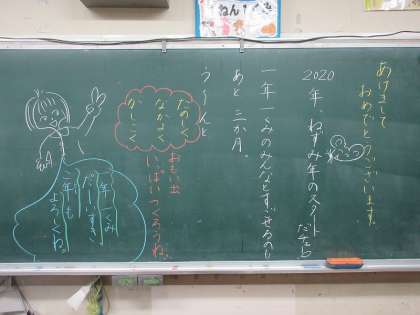 あけまして
おめでとうございます。
2020年、ねずみ年のスタート
だチュウ
一年一くみのみんなとすごせるのも
あと 三か月。
う〜んと
たのしく
なかよく
かしこく
おもい出
いっぱいつくろうね。
一年一くみ
だーいすき
今年も
よろしくね。